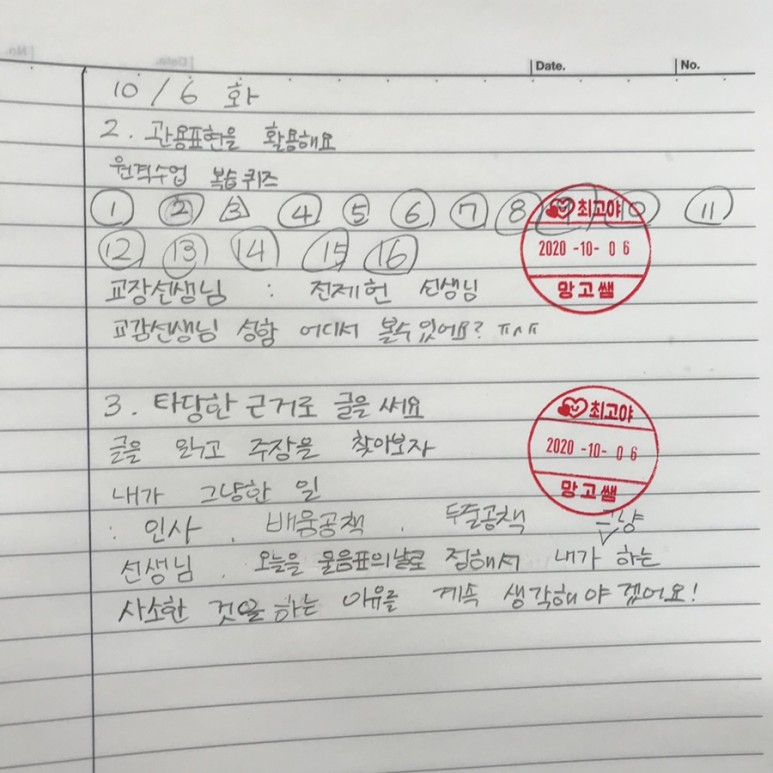 Date. No.
10 / 6 화
2. 관용표현을 활용해요
원격수업 복습퀴즈
① ② ③ ④ ⑤ ⑥ ⑦ ⑧ ⑨ ⑩ ⑪
최고야
⑫ ⑬ ⑭ ⑮ ⑯
2020-10-06
망고쌤
교장선생님 : 전제헌 선생님
교감선생님 성함 어디서 볼수있어요? ㅠㅅㅠ
3. 타당한 근거로 글을 써요
최고야
글을 읽고 주장을 찾아보자
2020-10-06
망고쌤
내가 그냥한 일
: 인사, 배움공책, 두줄공책
그냥
선생님, 오늘을 물음표의날로 정해서 내가 하는
사소한 것을 하는 이유를 계속 생각해야겠어요!